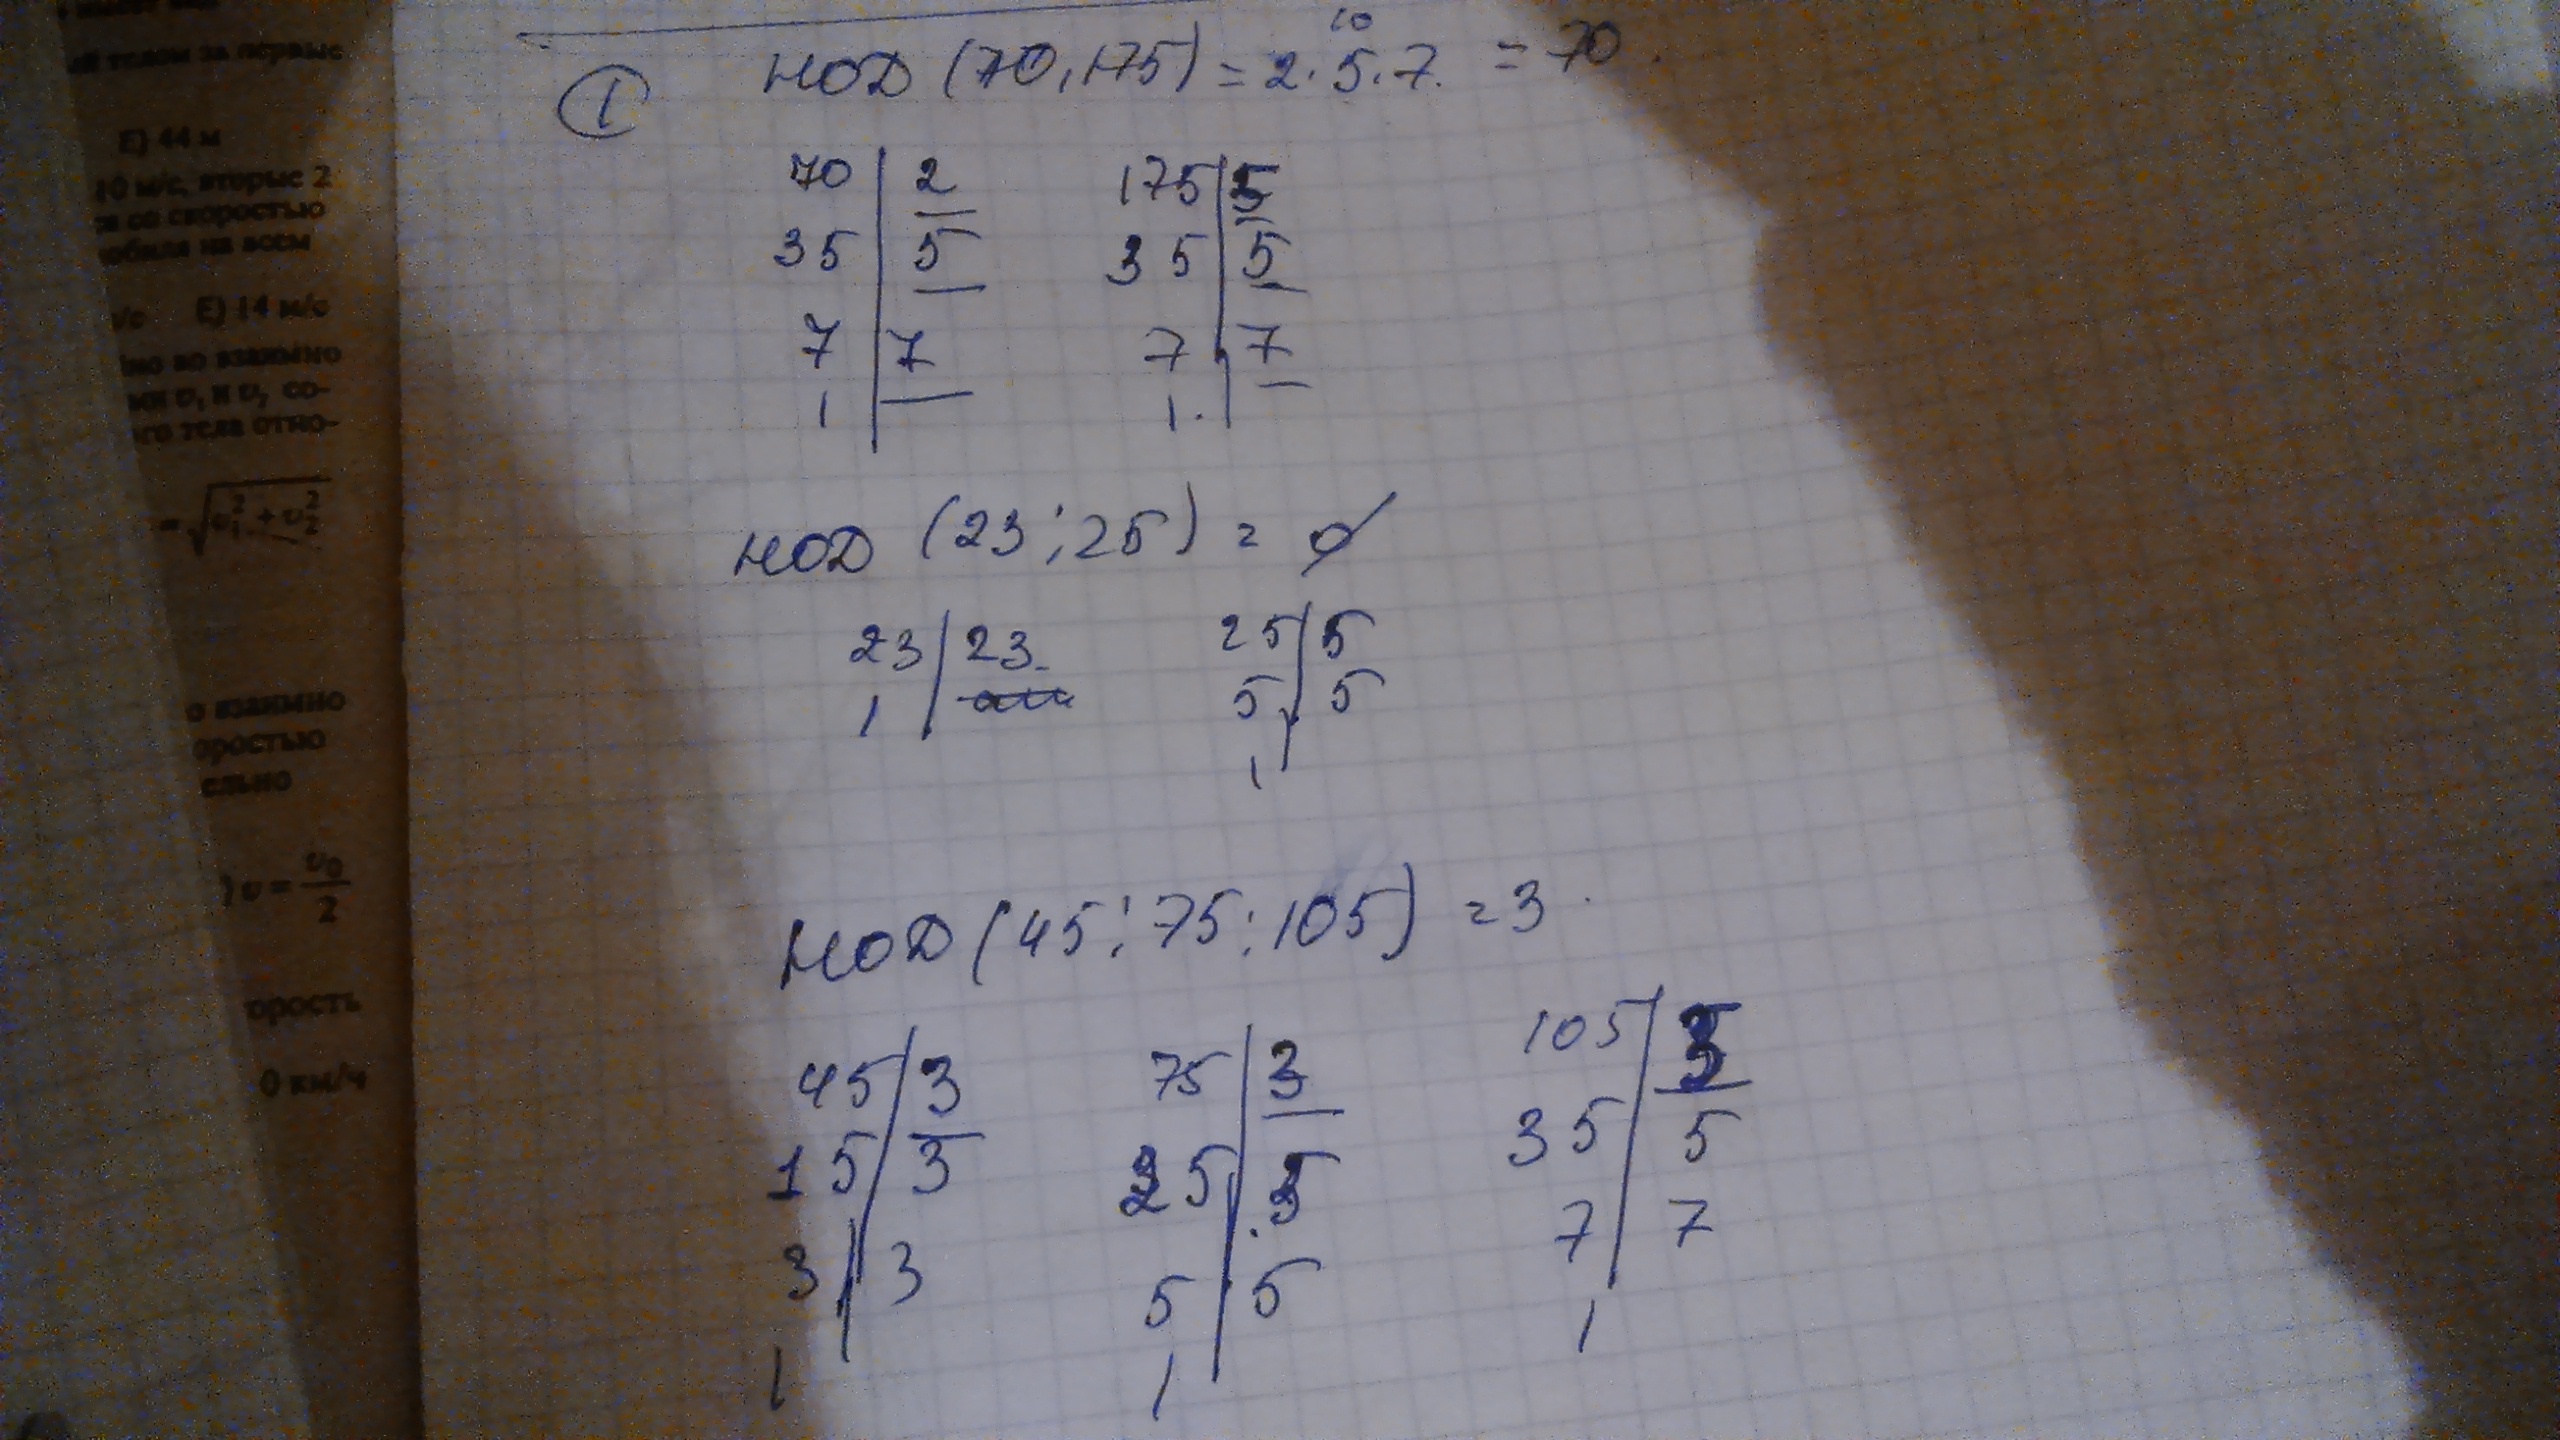 ей телом за первые
Е) 44 м
10 м/с, вторые 2
со скоростью
м/с Е) 14 м/с
во взаимно
υ₁ и υ₂ со-
тела отно-
= √υ₁² + υ₂²
о взаимно
оростью
ельно
) υ = υ₀/2
орость
0 км/ч
① НОД (70, 175) = 2·5·7. = 70.
10
70 | 2 175 | 5
35 | 5 35 | 5
7 | 7 7 | 7
1 1.
НОД (23; 25) = ∅
23 | 23 25 | 5
1 5 | 5
1
НОД (45; 75; 105) = 3.
45 | 3 75 | 3 105 | 3
15 | 3 25 | 5 35 | 5
3 | 3 5 | 5 7 | 7
1 1 1